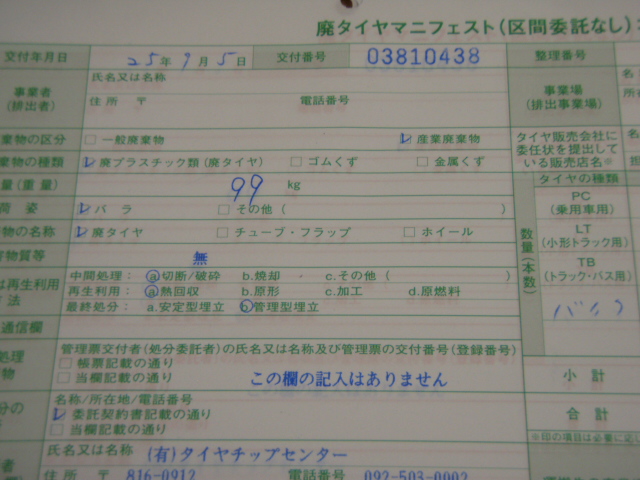 廃タイヤマニフェスト(区間委託なし)
交付年月日 25年9月5日 交付番号 03810438 整理番号
事業者 (排出者) 氏名又は名称 事業場 (排出事業場) 名
住所 〒 電話番号 所
棄物の区分 一般廃棄物 産業廃棄物 タイヤ販売会社に委任状を提出している販売店名※
棄物の種類 廃プラスチック類(廃タイヤ) ゴムくず 金属くず
量(重量) 99 kg タイヤの種類
荷姿 バラ その他( ) 数量(本数) PC (乗用車用)
物の名称 廃タイヤ チューブ・フラップ ホイール LT (小形トラック用)
物質等 無 TB (トラック・バス用)
は再生利用 法 中間処理: a.切断/破砕 b.焼却 c.その他( )
再生利用: a.熱回収 b.原形 c.加工 d.原燃料 バイク
最終処分: a.安定型埋立 b.管理型埋立
通信欄
処理 物 管理票交付者(処分委託者)の氏名又は名称及び管理票の交付番号(登録番号)
帳票記載の通り 小計
当欄記載の通り この欄の記入はありません
分の 名称/所在地/電話番号
委託契約書記載の通り 合計
当欄記載の通り ※印の項目は必要に応じ
者 氏名又は名称 (有)タイヤチップセンター
住所 〒 816-0912 電話番号 092-503-0002